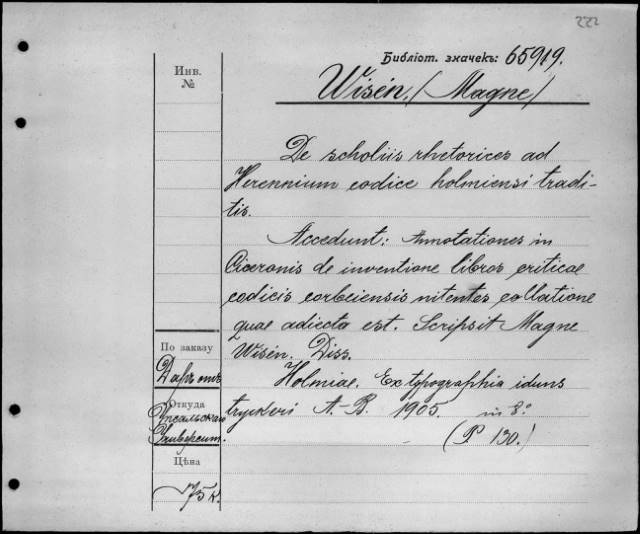 222
Библіот. значекъ: 65919.
Инв.
№
Wisén, (Magne)
De scholiis rhetorices ad
Herennium codice holmiensi tradi-
tis.
Accedunt: Annotationes in
Ciceronis de inventione libros criticae
codicis corbeiensis nitentes collatione
quae adiecta est. Scripsit Magne
Wisén. Diss.
Holmiae. Ex typographia iduns
tryckeri A.-B. 1905. in 8.º
(P 130.)
По заказу
Даръ отъ
Откуда
Упсальскаго
Университ.
Цѣна
75 к.